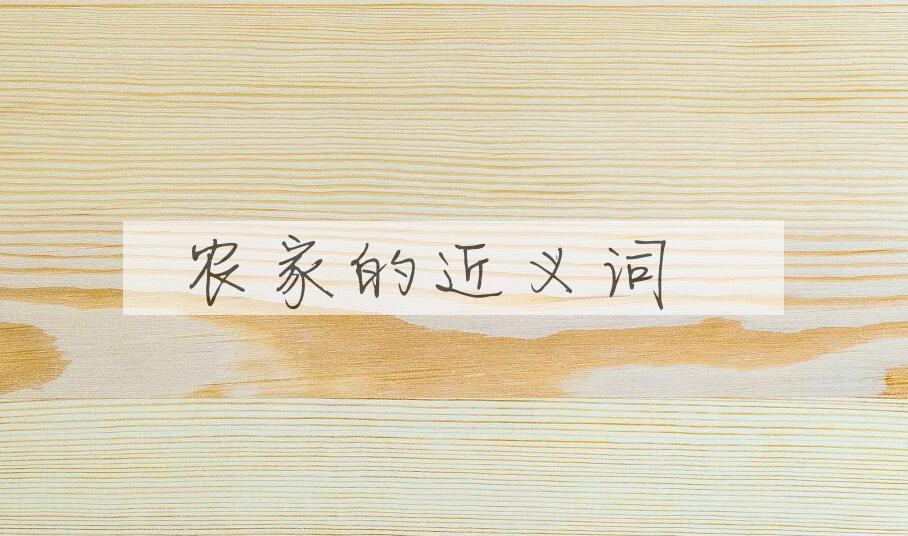 农家的近义词